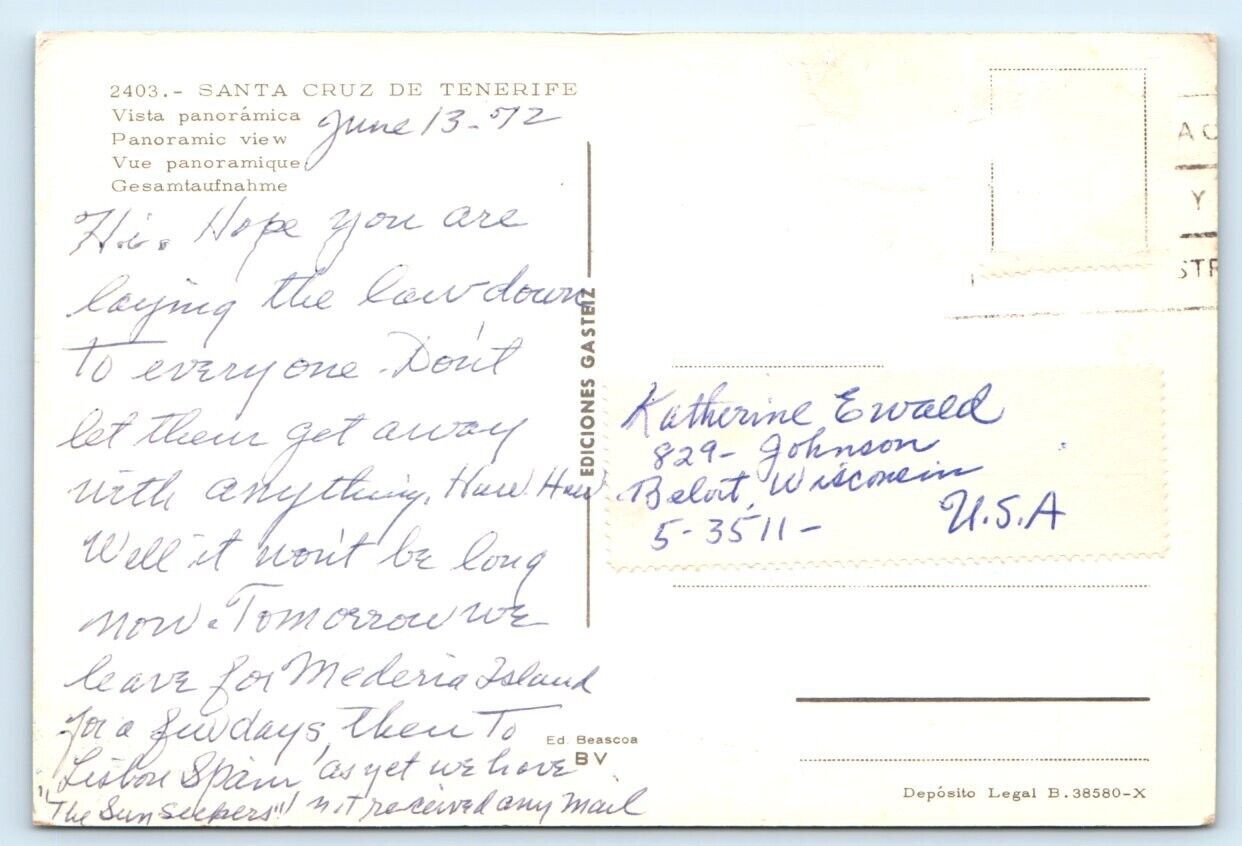 2403.- SANTA CRUZ DE TENERIFE
Vista panorámica
Panoramic view
Vue panoramique
Gesamtaufnahme
June 13-72
Hi. Hope you are
laying the law down
To everyone. Don't
let them get away
with anything. Haw Haw
Well it won't be long
now. Tomorrow we
leave for Mederia Island
for a few days, then To
Lisbon Spain as yet we have
"The Sun Seekers" not received any mail
EDICIONES GASTEIZ
Ed. Beascoa
BV
AC
Y
STR
Katherine Ewald
829- Johnson
Beloit, Wisconsin
5-3511- U.S.A
Depósito Legal B.38580-X